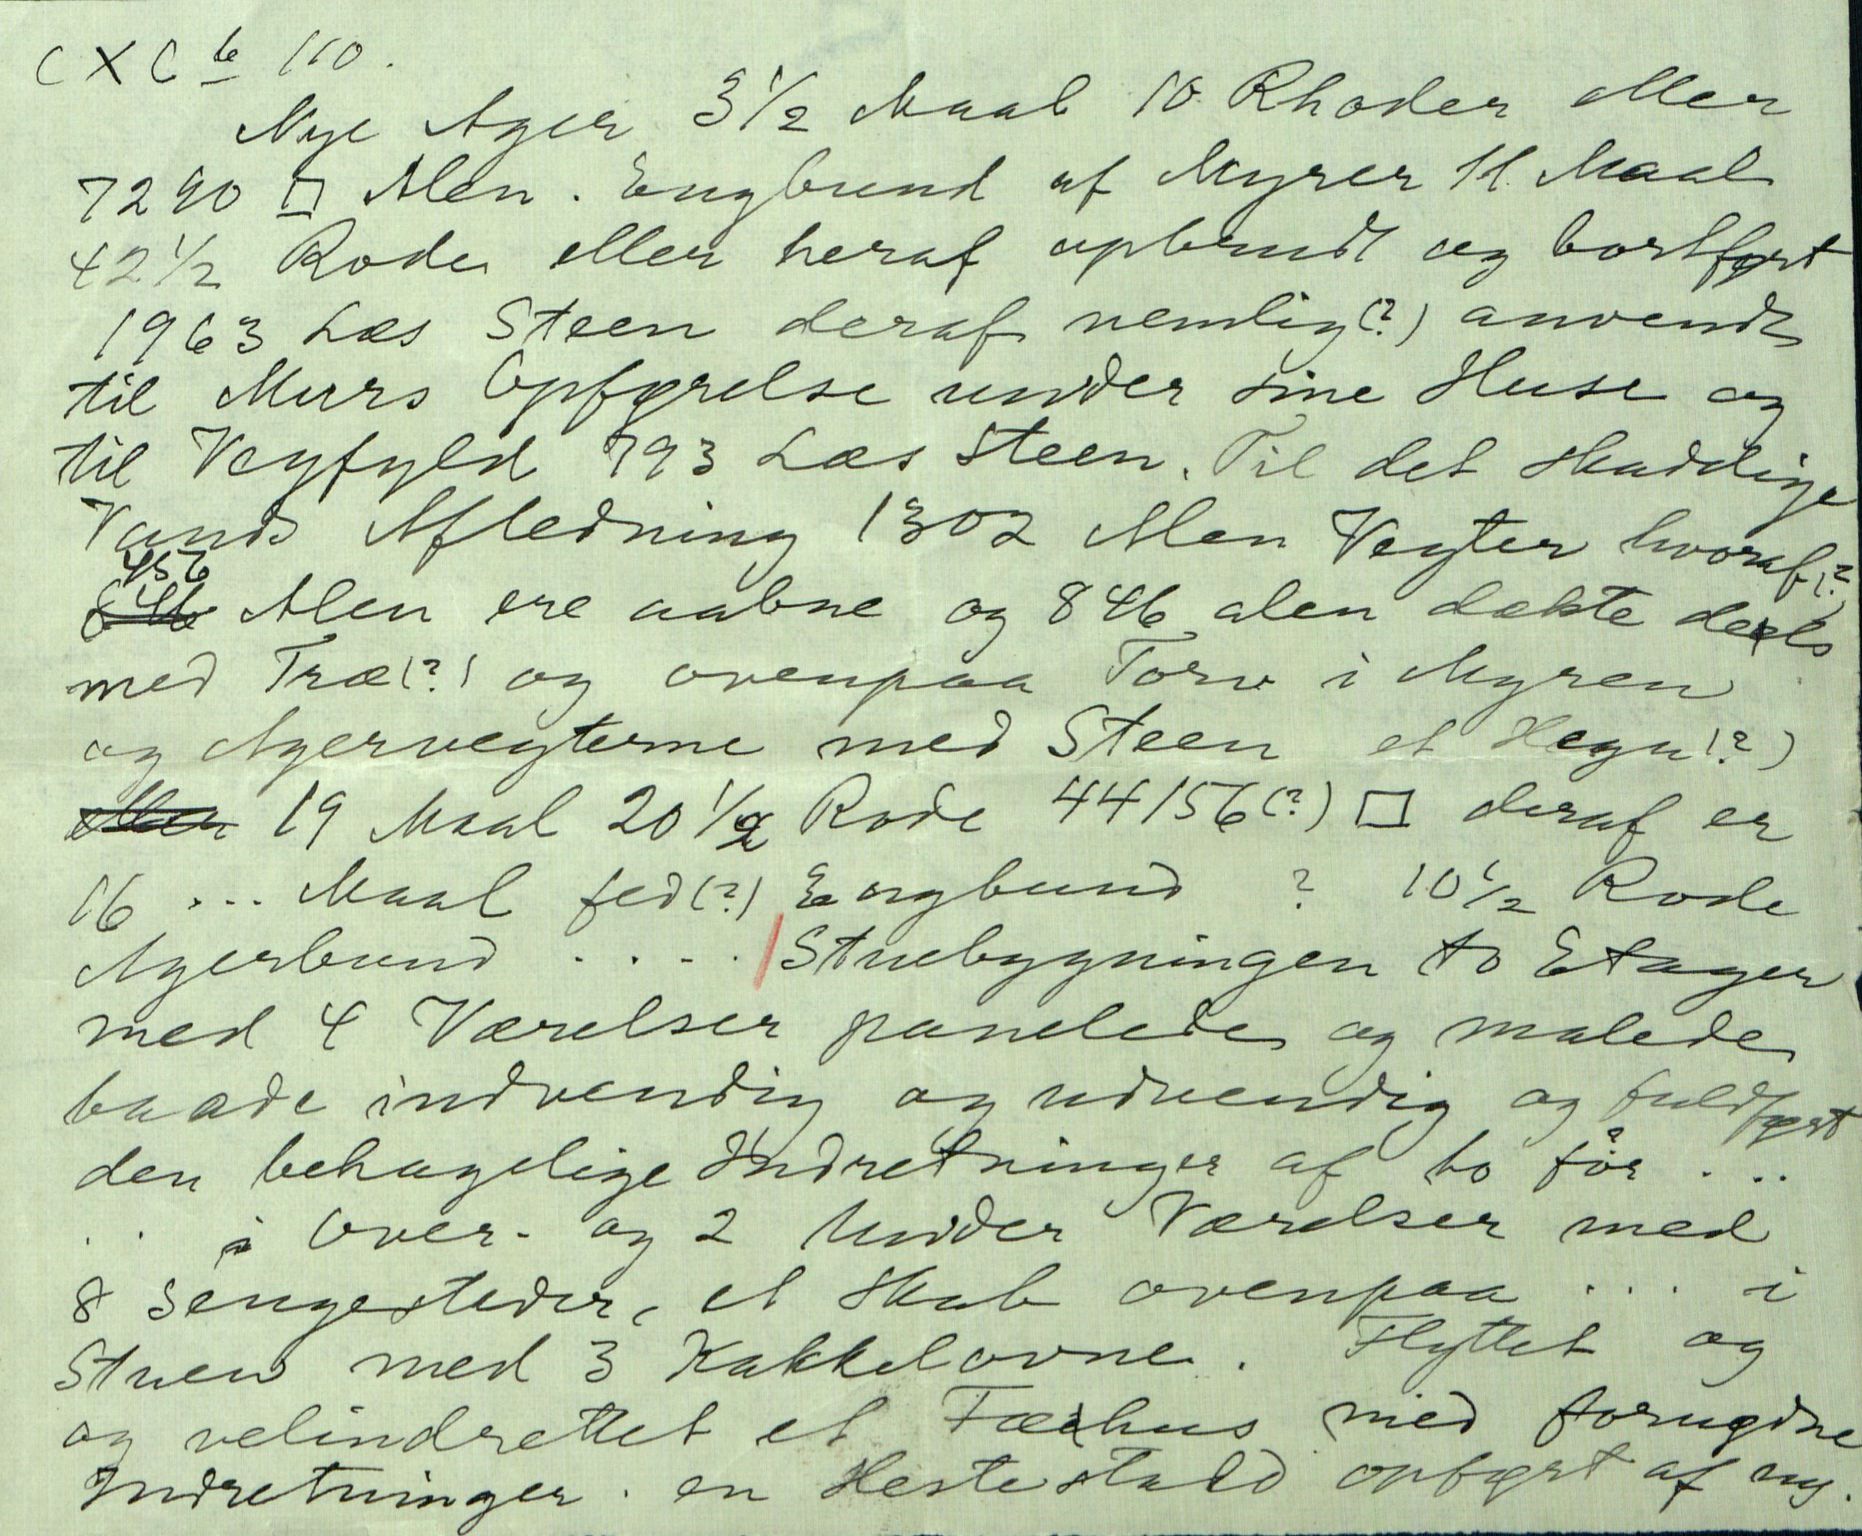 C X C b 110.
Nye Ager 3 1/2 Maal 10 Rhoder eller
7290 □ Alen. Engbund af Myrer 11. Maal
42 1/2 Rode eller heraf opbrudt og bortført
1963 Læs Steen deraf nemlig(?) anvendt
til Murs Opførelse under sine Huse og
til Veyfyld 793 Læs Steen. Til det skadelige
Vands Afledning 1302 Alen Veyter hvoraf(?)
456
Alen ere aabne og 846 alen dækte deels
med Træ(?) og ovenpaa Torv i Myren
og Agerveyterne med Steen et Hegn(?)
19 Maal 20 1/2 Rode 44156(?) □ deraf er
16 ... Maal fed(?) Engbund ? 10 1/2 Rode
Agerbund .... Stuebygningen to Etager
med 4 Værelser panelede og malede
baade indvendig og udvendig og fuldført
den behagelige Indretninger af to får? ...
.. i Over- og 2 Under Værelser med
8 Sengesteder, et Skab ovenpaa ... i
Stuen med 3 Kakkelovne. Flyttet og
og velindrettet et Fæhus med fornødne
Indretninger. en Hestestald opført af ny.